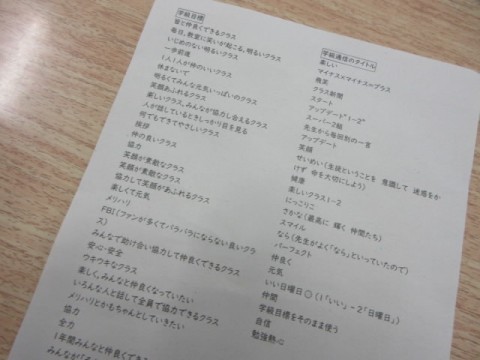 学級目標
皆と仲良くできるクラス
毎日、教室に笑いが起こる、明るいクラス
いじめのない明るいクラス
一歩前進
1人1人が仲のいいクラス
休まないで
明るくてみんな元気いっぱいのクラス
笑顔あふれるクラス
楽しいクラス、みんなが協力し合えるクラス
人が話しているときしっかり目を見る
何でもできてやさしいクラス
挨拶
仲の良いクラス
協力
笑顔が素敵なクラス
笑顔が素敵なクラス
協力して笑顔があふれるクラス
楽しくて元気
メリハリ
FBI(ファンが多くてバラバラにならない良いクラス)
みんなで助け合い協力して仲良くできるクラス
愛・心・安全
ウキウキなクラス
楽しく、みんなと仲良くなっていたい
いろんな人と話して全員で協力できるクラス
メリハリとかもちゃんとしていきたい
協力
全力
1年間みんなと仲良くできるクラス
みんなが
学級通信のタイトル
楽しい
マイナス×マイナス=プラス
微笑
クラス新聞
スタート
アップデート"1-2"
スーパー2組
先生から毎回別の一言
アップデート
笑顔
せいめい(生徒ということを 意識して 迷惑をか
けず 命を大切にしよう)
健康
楽しいクラス1-2
にっこりこ
さかな(最高に 輝く 仲間たち)
スマイル
なら(先生がよく「なら」といっていたので)
パーフェクト
仲良く
元気
いい日曜日◎(1「いい」-2「日曜日」)
仲間
学級目標をそのまま使う
自信
勉強熱心